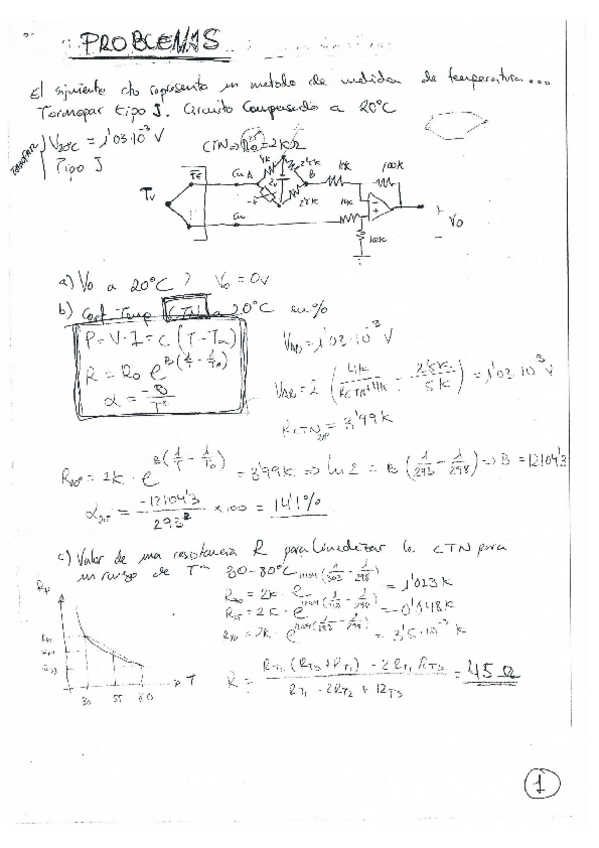 PROBLEMAS
El siguiente cto representa un metodo de medida de temperatura...
Termopar tipo J. Circuito Compensado a 20°C
V20°C = 1'03·10^-3 V
Tipo J
CTN => R25 = 2KΩ
4K
2'5K
Cu A
B
10K
100K
Tv
Fe
Cu
10K
100K
Vo
a) Vo a 20°C? Vo = 0v
b) Coef Temp CTN a 20°C en %
P = V·I = C (T - Ta)
R = Ro e^B(1/T - 1/To)
α = -B/T²
VAB = 1'03·10^-3 V
VAB = 2 (4K/(RCTN+4K) - 2'5K/5K) = 1'03·10^-3 V
RCTN20° = 3'99K
R20° = 2K · e^B(1/T - 1/To) = 3'99K => ln 2 = B (1/293 - 1/298) => B = 12104'3
α20° = -12104'3/293² x100 = 14'1%
c) Valor de una resistencia R para linealizar la CTN para
un rango de Tª 30-80°C
= 1'023K
= 0'048K
= 3'5·10^-3 K
30 55 80 T
R = (RT2 (RT3 + RT1) - 2RT1 RT3)/(RT1 - 2RT2 + RT3) = 45Ω
1